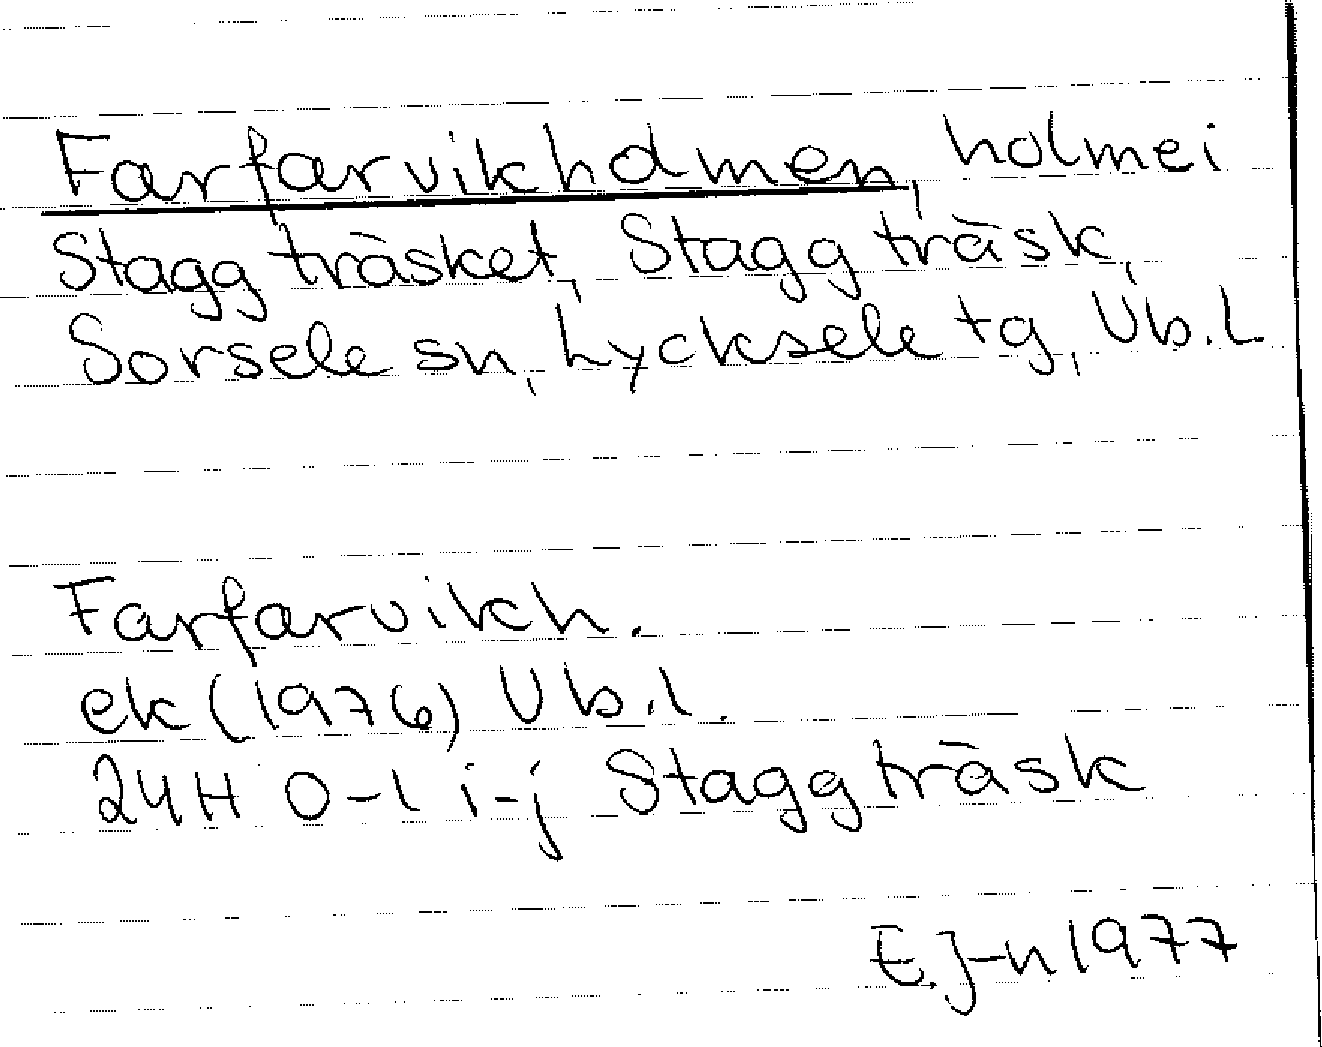 Farfarvikholmen, holme i
Staggträsket, Staggträsk,
Sorsele sn, Lycksele tg, Vb.l.
Farfarvikh.
ek (1976) Vb.l.
24H 0-1 i-j Staggträsk
E.J-n 1977